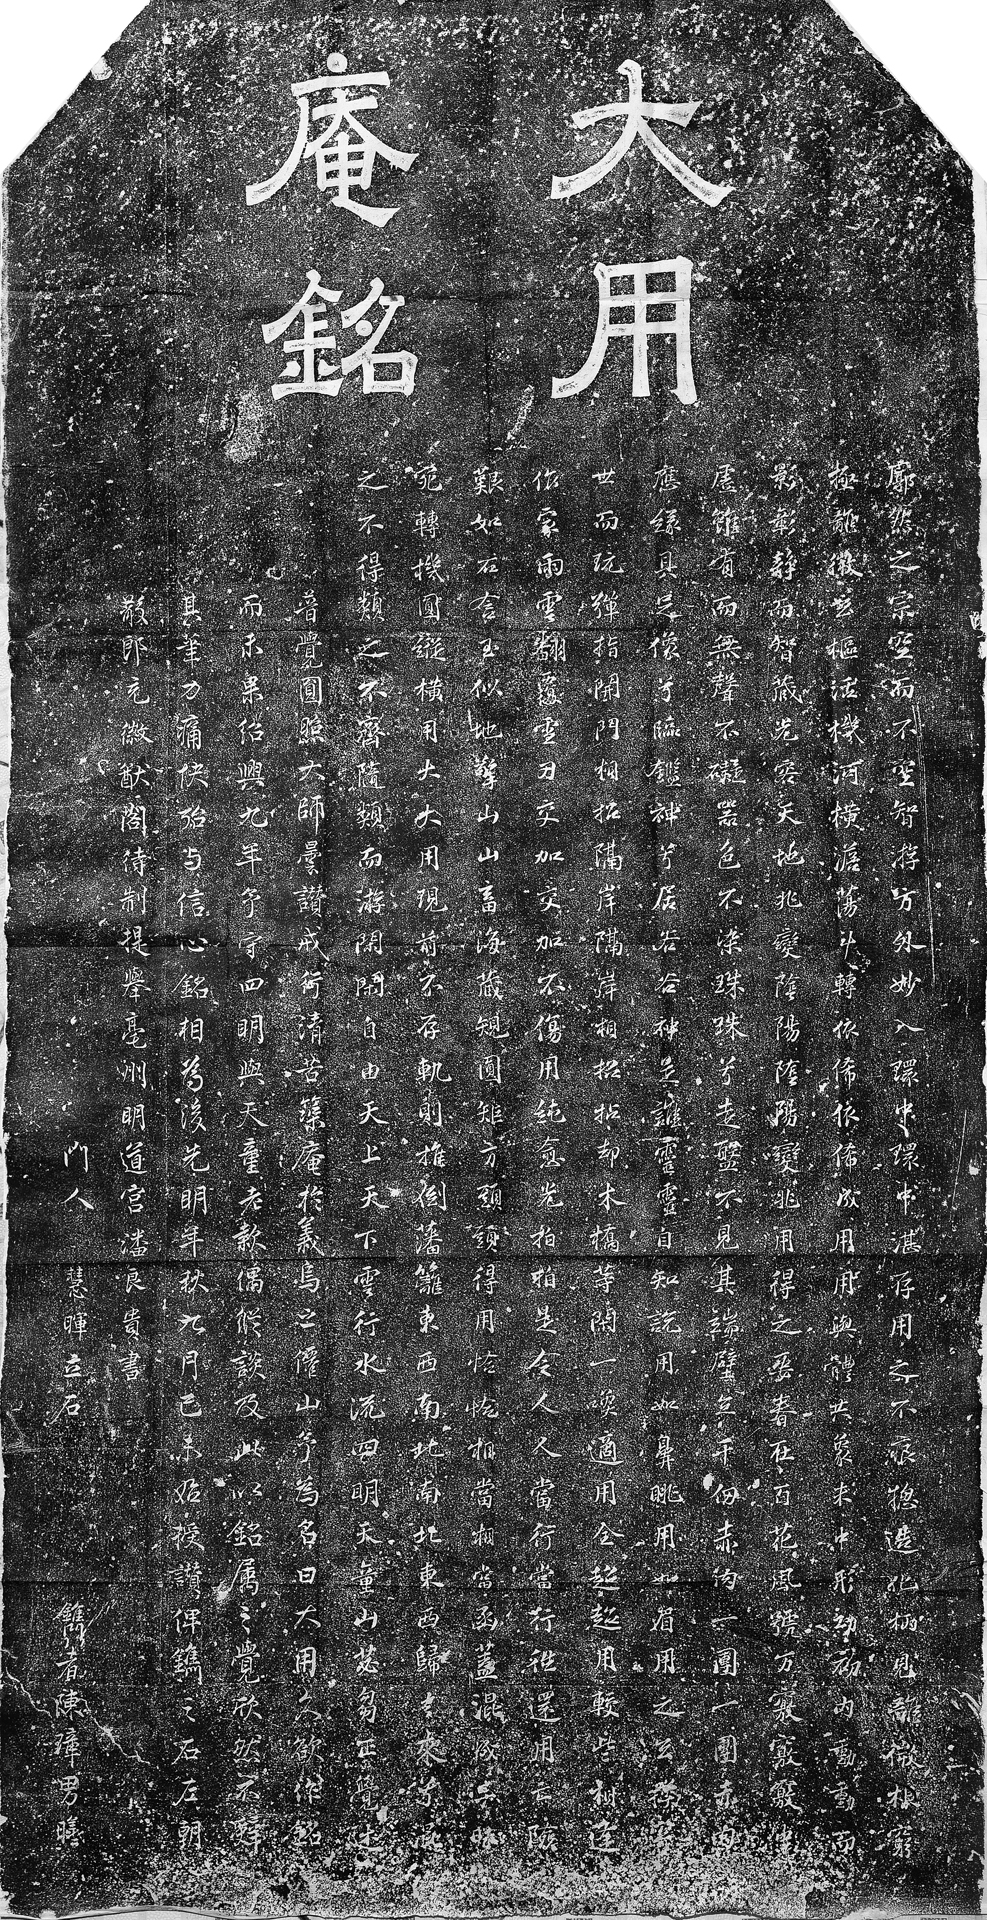 大用
庵銘
廓然之宗空而不空智游方外妙入環中環中湛存用之不痕摠造化柄見離微根窮
極離微玄樞活機河橫澹蕩斗轉依俙依俙成用用與體共象未中形動初内動動而
影彰靜而智藏光容天地兆變陰陽陰陽變兆用得之要春在百花風號万竅竅籟
虛雖有而無聲不礙器色不染珠珠兮走盤不見其端壁立千仞赤肉一團一團赤肉
應緣具足像兮臨鑑神兮居谷谷神是誰靈靈自知說用如鼻眺用如眉用之云
世而玩彈指開門相招隔岸隔岸相招拈却木橋等閑一喚適用全超超用較些相逢
作家雨雲翻覆雪刃交加交加不傷用純愈光拍拍是令人人當行當行往還用亡險
艱如石含玉似地擎山山畜海藏規圓矩方頭頭得用恰恰相當相當函蓋混成三昧
宛轉機圓縱橫用大大用現前不存軌則推倒藩籬東西南北南北東西歸去來兮混
之不得類之不齊隨類而游閑閑自由天上天下雲行水流四明天童山苾芻正覺述
普覺圓照大師曇讚戒行清苦築庵於義烏之僊山予為名曰大用久欲作銘
而未果紹興九年予守四明與天童老款偶縱談及此以銘属之覺欣然不辭
其筆力痛快殆与信心銘相為後先明年秋九月己未始授讚俾鐫之石左朝
散郎充徽猷閣待制提舉亳州明道宮潘良貴書
門人慧暉立石鐫者陳璋男曦